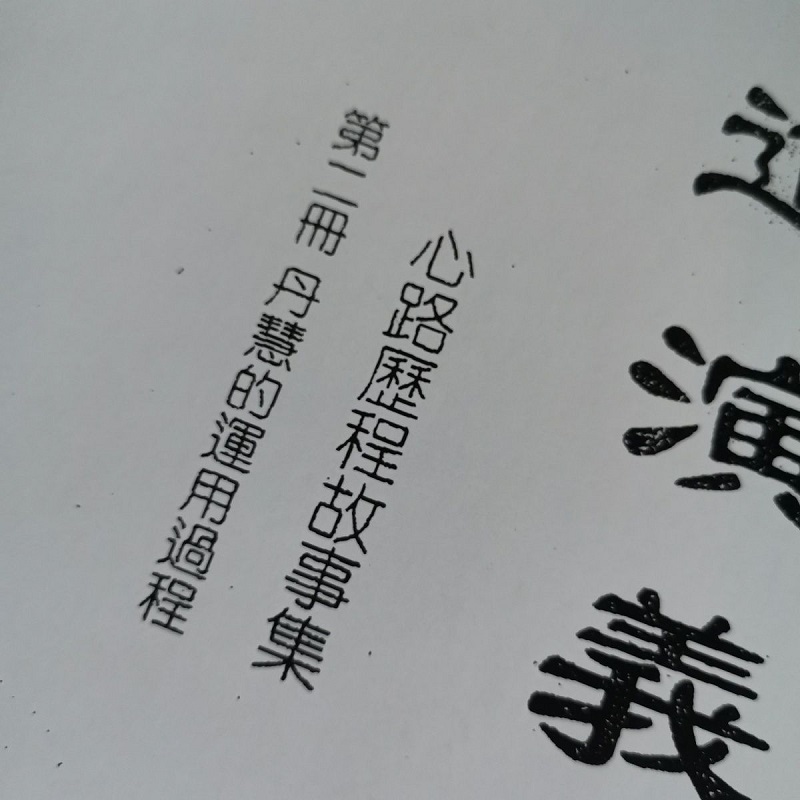 演義
心路歷程故事集
第二冊 丹慧的運用過程